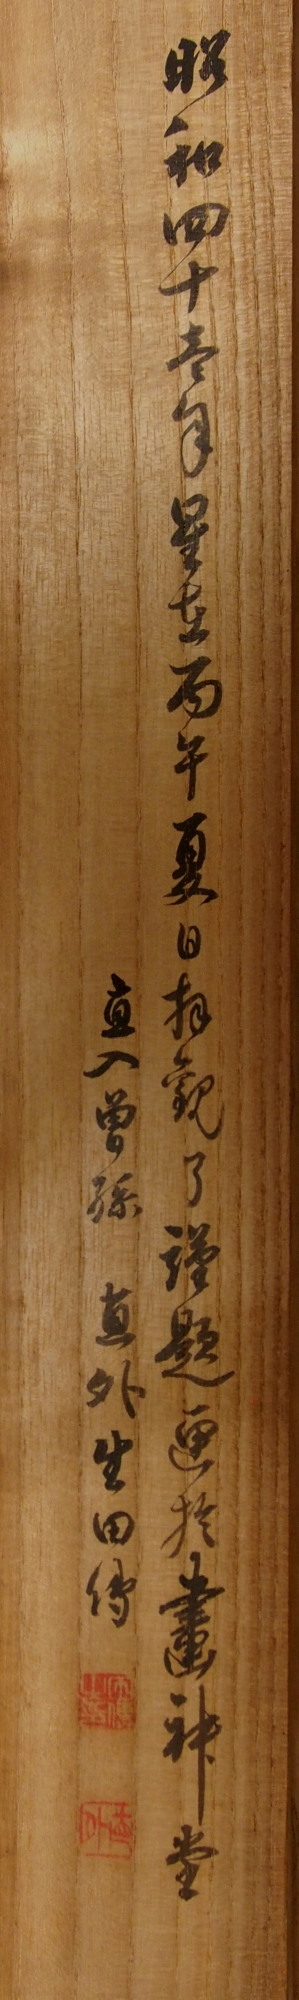 昭和四十壱年星在丙午夏日拝観了謹題匣於畫神堂
直入曽孫 直外生田傳
直外